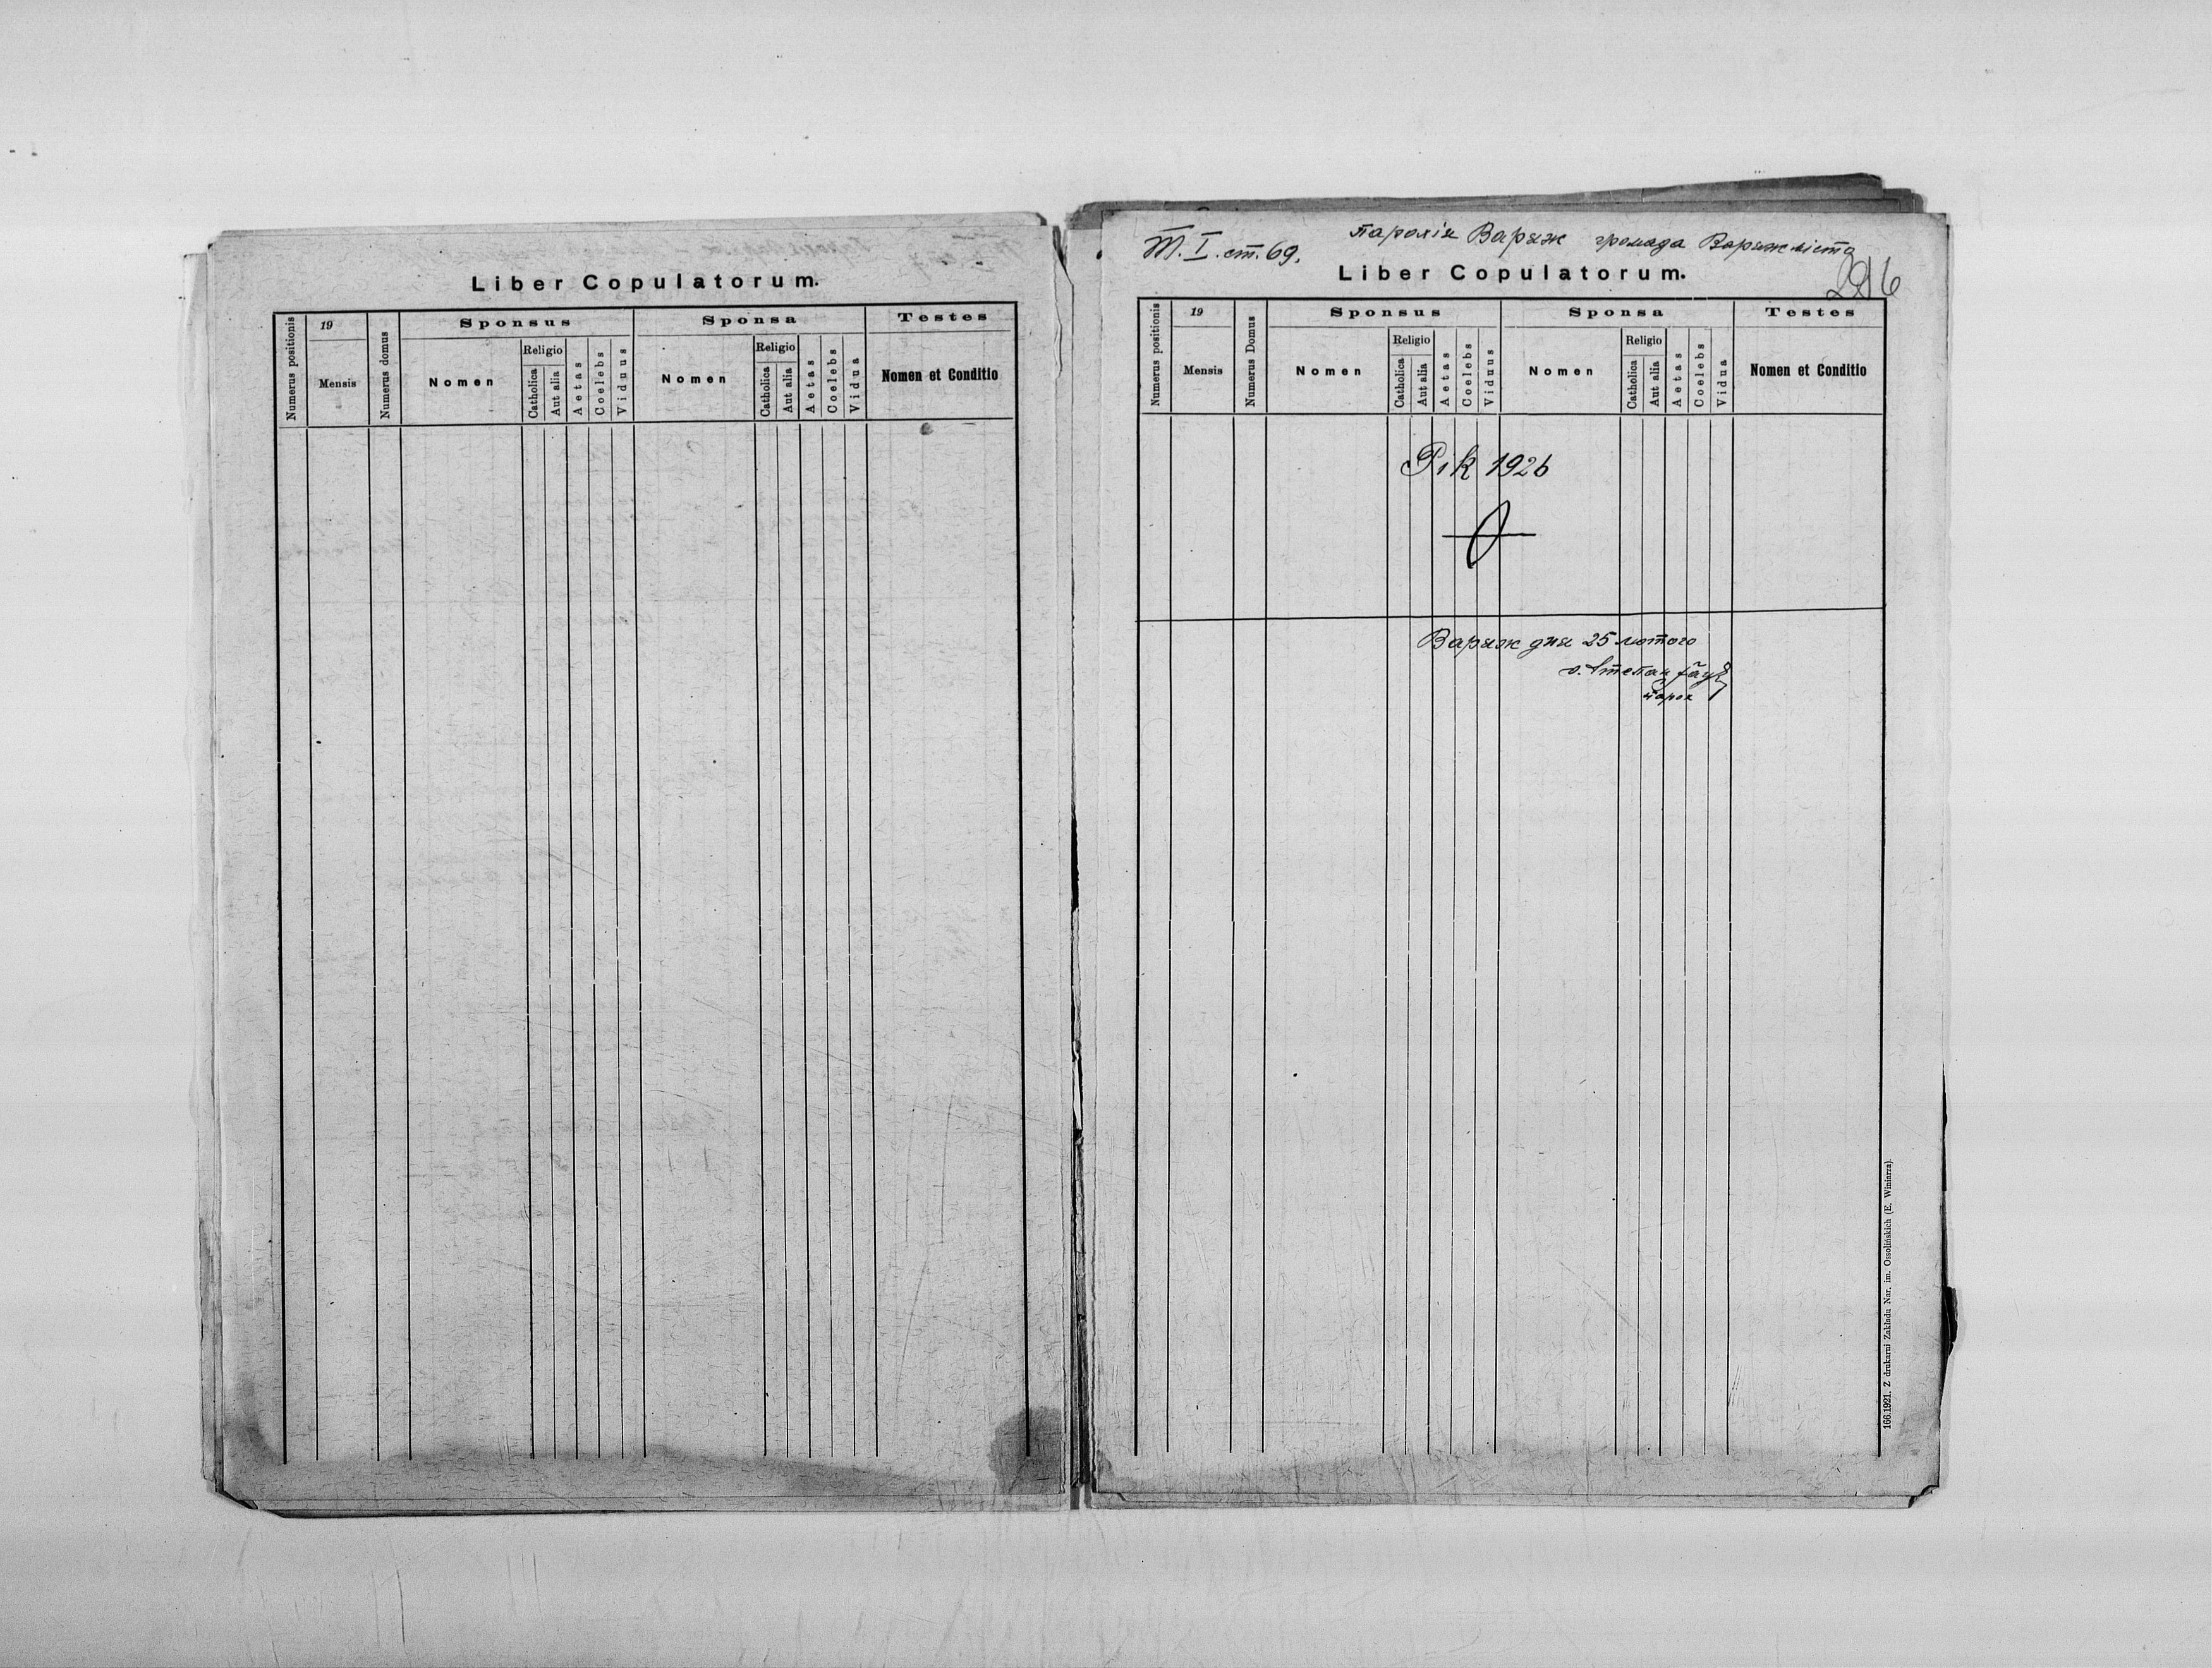 Liber Copulatorum.
Numerus positionis
19
Mensis
Numerus domus
Sponsus
Nomen
Religio
Catholica
Aut alia
Aetas
Coelebs
Viduus
Sponsa
Nomen
Religio
Catholica
Aut alia
Aetas
Coelebs
Vidua
Testes
Nomen et Conditio
Т. I. ст. 69.
парохія Варяж громада Варяж місто
Liber Copulatorum.
Numerus positionis
19
Mensis
Numerus Domus
Sponsus
Nomen
Religio
Catholica
Aut alia
Aetas
Coelebs
Viduus
Sponsa
Nomen
Religio
Catholica
Aut alia
Aetas
Coelebs
Vidua
Testes
Nomen et Conditio
Рік 1926
Варяж дня 25 лютого
о. Степан
парох
166.1921. Z drukarni Zakładu Nar. im. Ossolińskich (E. Winiarza).